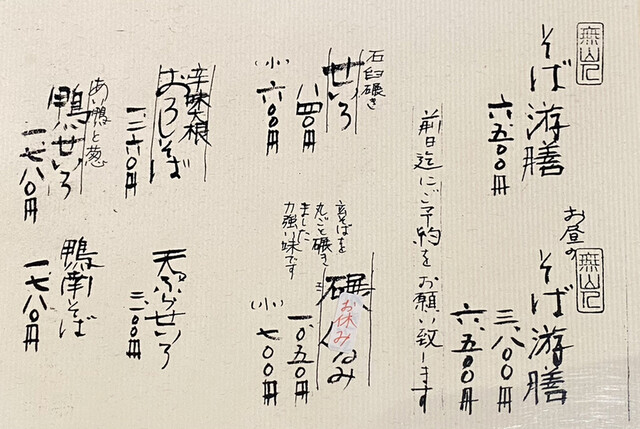 無山人
そば游膳
六、五〇〇円
お昼の
無山人
そば游膳
三、八〇〇円
六、五〇〇円
前日迄にご予約をお願い致します
石臼碾き
せいろ
八四〇円
(小)
六〇〇円
玄そばを
丸ごと碾き
ました
力強い味です
碾
お休み
ぐるみ
一、〇五〇円
(小)
七〇〇円
辛味大根
おろしそば
一、二六〇円
天ぷらせいろ
三、一〇〇円
あい鴨と葱
鴨せいろ
一、七八〇円
鴨南そば
一、七八〇円